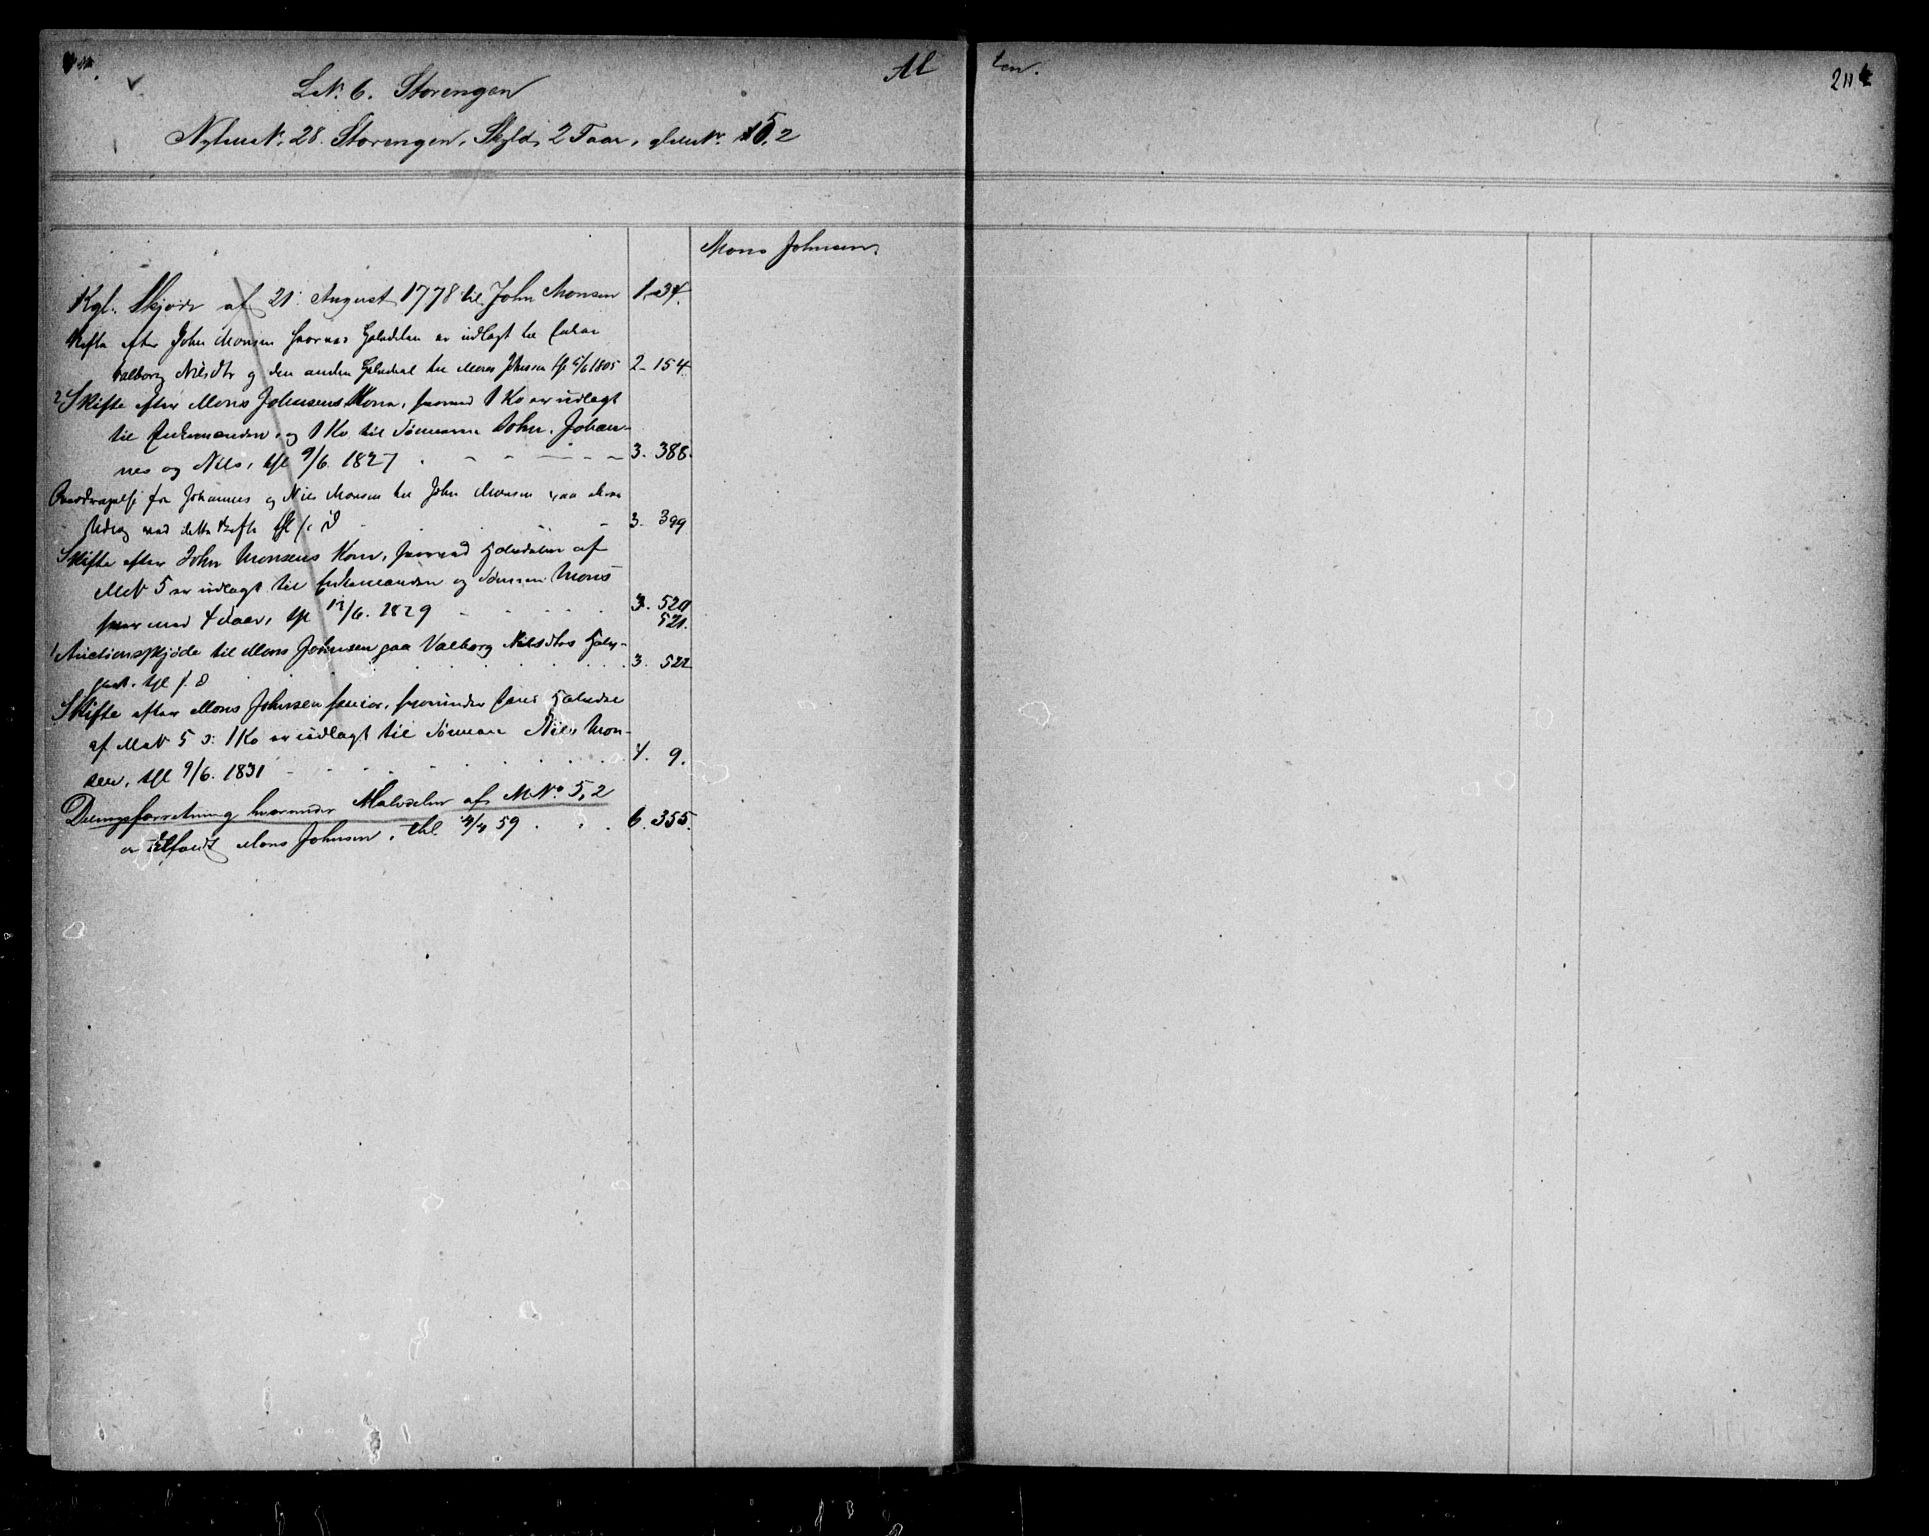 Al ten.
211
L.N. 6. Storengen
Nyt M.N. 28. Storengen, Skyld, 2 Taar, gl. M.N. 5,2
Mons Johnsen
Kgl. Skjøde af 21. August 1778 til John Monsen 1-34.
Skifte efter John Monsen hvorved Halvdelen er udlagt til Enken
Valborg Nilsdtr og den anden Halvdeel til Mons Johnsen tgl 5/6 1805 2-154
2 Skifte efter Mons Johnsens Kone, hvorved 1 Ko er udlagt
til Enkemanden, og 1 Ko til Sønnerne John, Johan-
nes og Nils, tgl 9/6 1827 3. 388.
Overdragelse fra Johannes og Nils Monsen til John Monsen paa deres
Udlæg ved dette Skifte tgl s. D 3. 399
Skifte efter John Monsens Kone, hvorved Halvdelen af
MN 5 er udlagt til Enkemanden og Sønnen Mons
hver med 4 Taar, tgl 12/6. 1829 3. 520
521.
1 Auctionsskjøde til Mons Johnsen paa Valborg Nilsdtrs Halv-
part. tgl s. D 3. 522
Skifte efter Mons Johnsen senior, hvorunder hans Halvdel
af MN 5 o: 1 Ko er udlagt til Sønnen Nils Mon-
sen, tgl 9/6. 1831 4. 9.
Delingsforretning hvorunder Halvdelen af MNo. 5,2
er tilfaldt Mons Johnsen, thl. 4/4 59 6. 355.